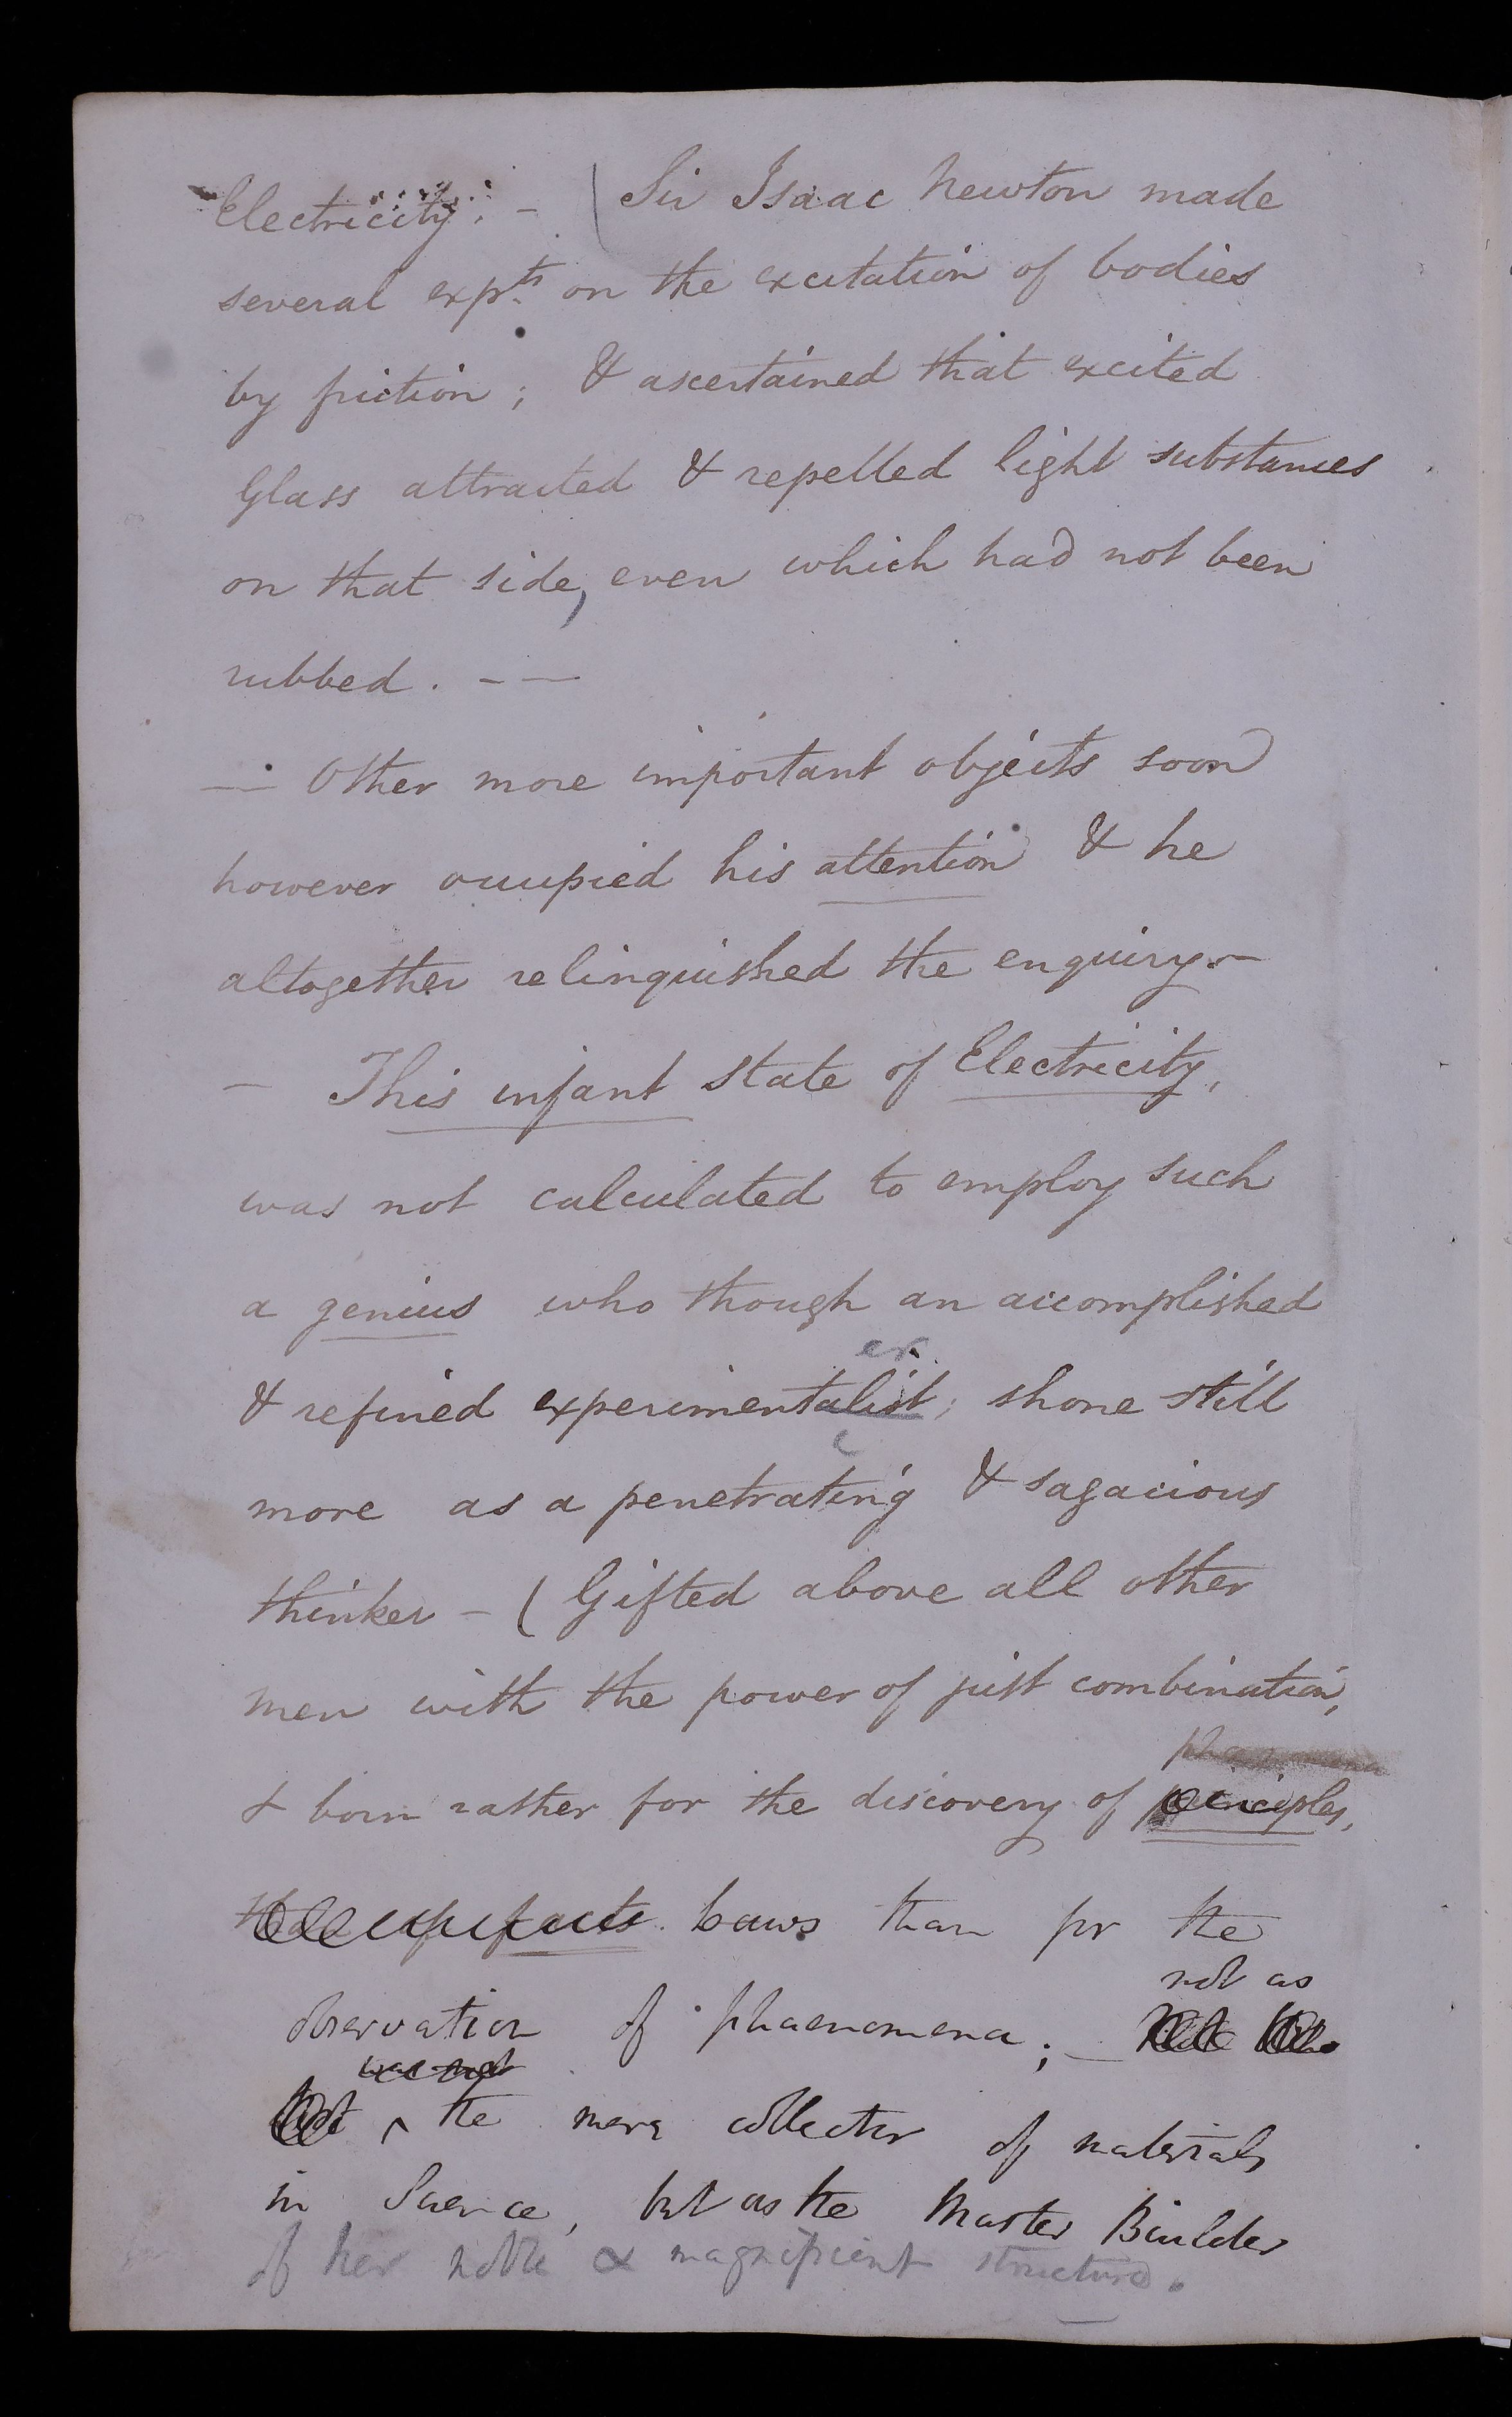 Electricity. - (Sir Isaac Newton made
several expts. on the excitation of bodies
by friction; & ascertained that excited
Glass attracted & repelled light substances
on that side, even which had not been
rubbed. - —
— Other more important objects soon
however occupied his attention & he
altogether relinquished the enquiry. -
— This infant state of Electricity,
was not calculated to employ such
a genius who though an accomplished
er
& refined experimentalist; shone still
more as a penetrating & sagacious
thinker - (Gifted above all other
men with the power of just combination,
& born rather for the discovery of principles,
facts. Laws than for the
not as
observation of phaenomena; —
was not
^ the mere collector of materials
in Science, but as the Master Builder
of her noble & magnificent structure.